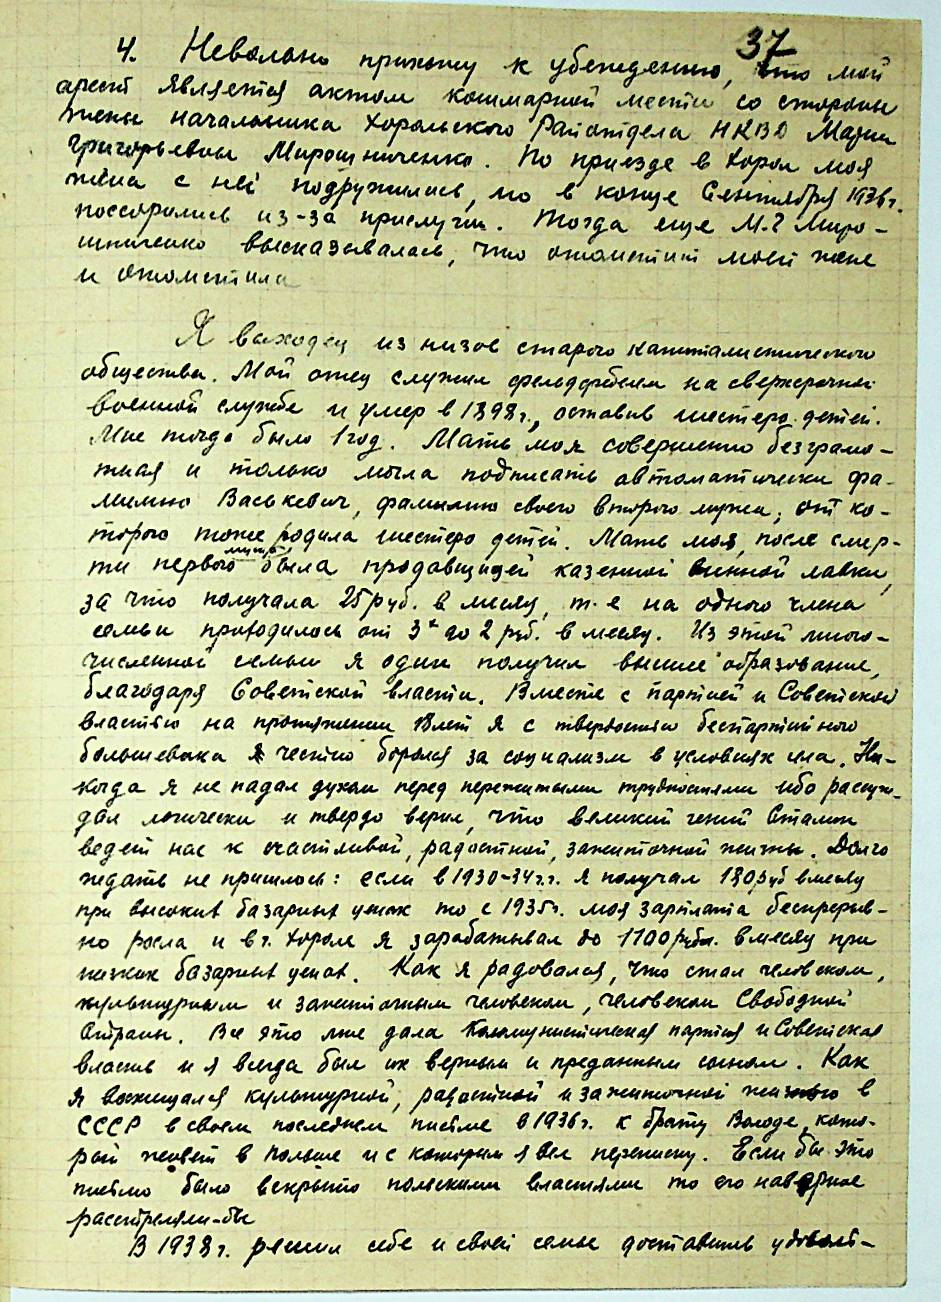 37
4. Невольно прихожу к убеждению, что мой
арест является актом кошмарной мести со стороны
жены начальника Хорольского Райотдела НКВД Марии
Григорьевны Мирошниченко. По приезде в Хорол моя
жена с ней подружилась, но в конце Сентября 1936г.
поссорились из-за прислуги. Тогда еще М.Г Миро-
шниченко высказывалась, что отомстит моей жене
и отомстила
Я выходец из низов старого капиталистического
общества. Мой отец служил фельдфебелем на сверхсрочной
военной службе и умер в 1898г., оставив шестеро детей.
Мне тогда было 1 год. Мать моя совершенно безграмо-
тная и только могла подписать автоматически фа-
милию Васькевич, фамилию своего второго мужа, от ко-
торого тоже родила шестеро детей. Мать моя, после смер-
ти первого мужа, была продавщицей казенной винной лавки,
за что получала 25 руб. в месяц, т.е на одного члена
семьи приходилось от 3х до 2 руб. в месяц. Из этой много-
численной семьи я один получил высшее образование,
благодаря Советской власти. Вместе с партией и Советской
властью на протяжении лет я с твердостью беспартийного
большевика честно боролся за социализм в условиях села. Ни-
когда я не падал духом перед пережитыми трудностями ибо рассуж-
дал логически и твердо верил, что великий гений Сталин
ведет нас к счастливой, радостной, зажиточной жизни. Долго
ждать не пришлось: если в 1930-34г.г. я получал 180 руб в месяц
при высоких базарных ценах то с 1935г. моя зарплата беспрерыв-
но росла и в г. Хороле я зарабатывал до 1100 рубл. в месяц при
низких базарных ценах. Как я радовался, что стал человеком,
культурным и зажиточным человеком, человеком Свободной
Страны. Все это мне дала Коммунистическая партия и Советская
власть и я всегда был их верным и преданным сыном. Как
я восхищался культурной, радостной и зажиточной жизнью в
СССР в своем последнем письме в 1936г. к брату Володе, кото-
рый живет в Польше и с которым я вел переписку. Если бы это
письмо было вскрыто польскими властями то его наверное
расстреляли-бы
В 1938г. решил себе и своей семье доставить удовольст-